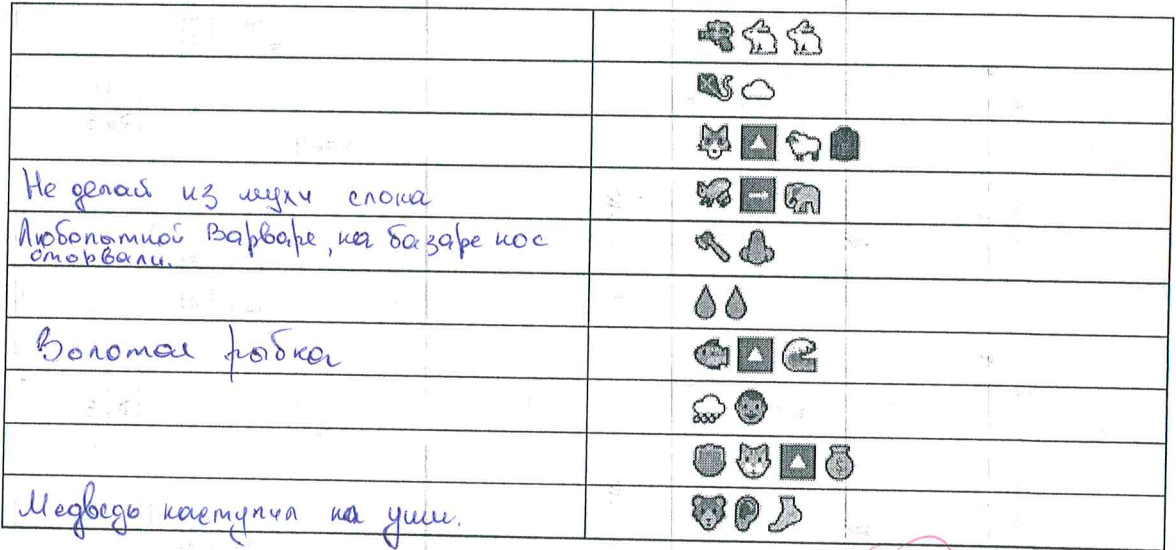 Не делай из мухи слона
Любопытной Варваре, на базаре нос
оторвали.
Золотая рыбка
Медведь наступил на уши.